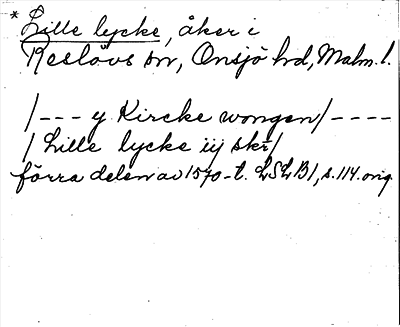 * Lille lycke, åker i
Reslövs sn, Onsjö hd, Malm. l.
/--- y Kircke wongen/----
/ Lille lycke iij skr/
förra delen av 1570-t. LSLB1, s. 114. orig